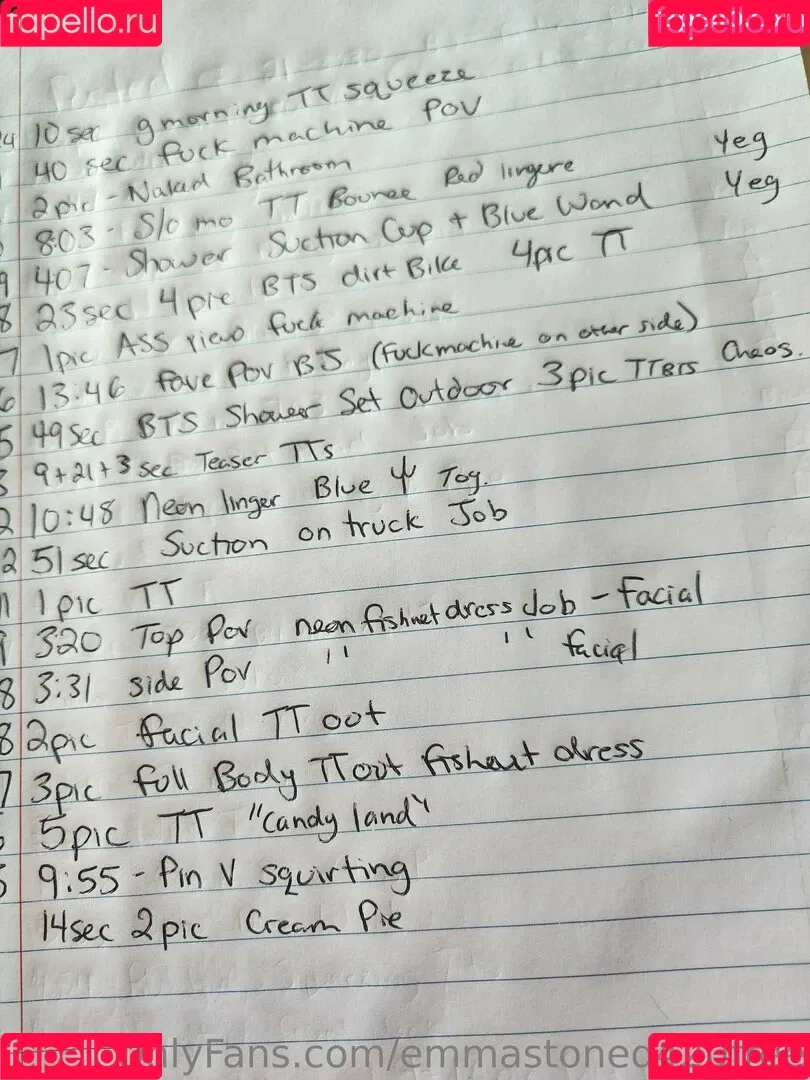 fapello.ru fapello.ru
24 10 sec gmorning TT squeeze
40 sec fuck machine POV
2pic - Naked Bathroom Yeg
8:03 - Slo mo TT Bounce Red lingere Yeg
9 407 - Shower Suction Cup + Blue Wand
8 23sec 4pic BTS dirt Bike 4pic TT
7 1pic ASS view fuck machine
6 13:46 fave POV BJ (fuckmachine on other side)
5 49sec BTS Shower Set Outdoor 3pic TTBTS Chaos.
3 9+21+3 sec Teaser TTs
2 10:48 Neon linger Blue Toy.
2 51 sec Suction on truck Job
1 1pic TT
9 320 Top Pov neon fishnet dress Job - facial
8 3:31 side Pov " " facial
8 2pic facial TT oot
7 3pic full Body TT out fishnet dress
5pic TT "Candy land"
5 9:55 - Pin V squirting
14sec 2pic Cream Pie
fapello.ru fapello.ru
nlyFans.com/emmastoneo